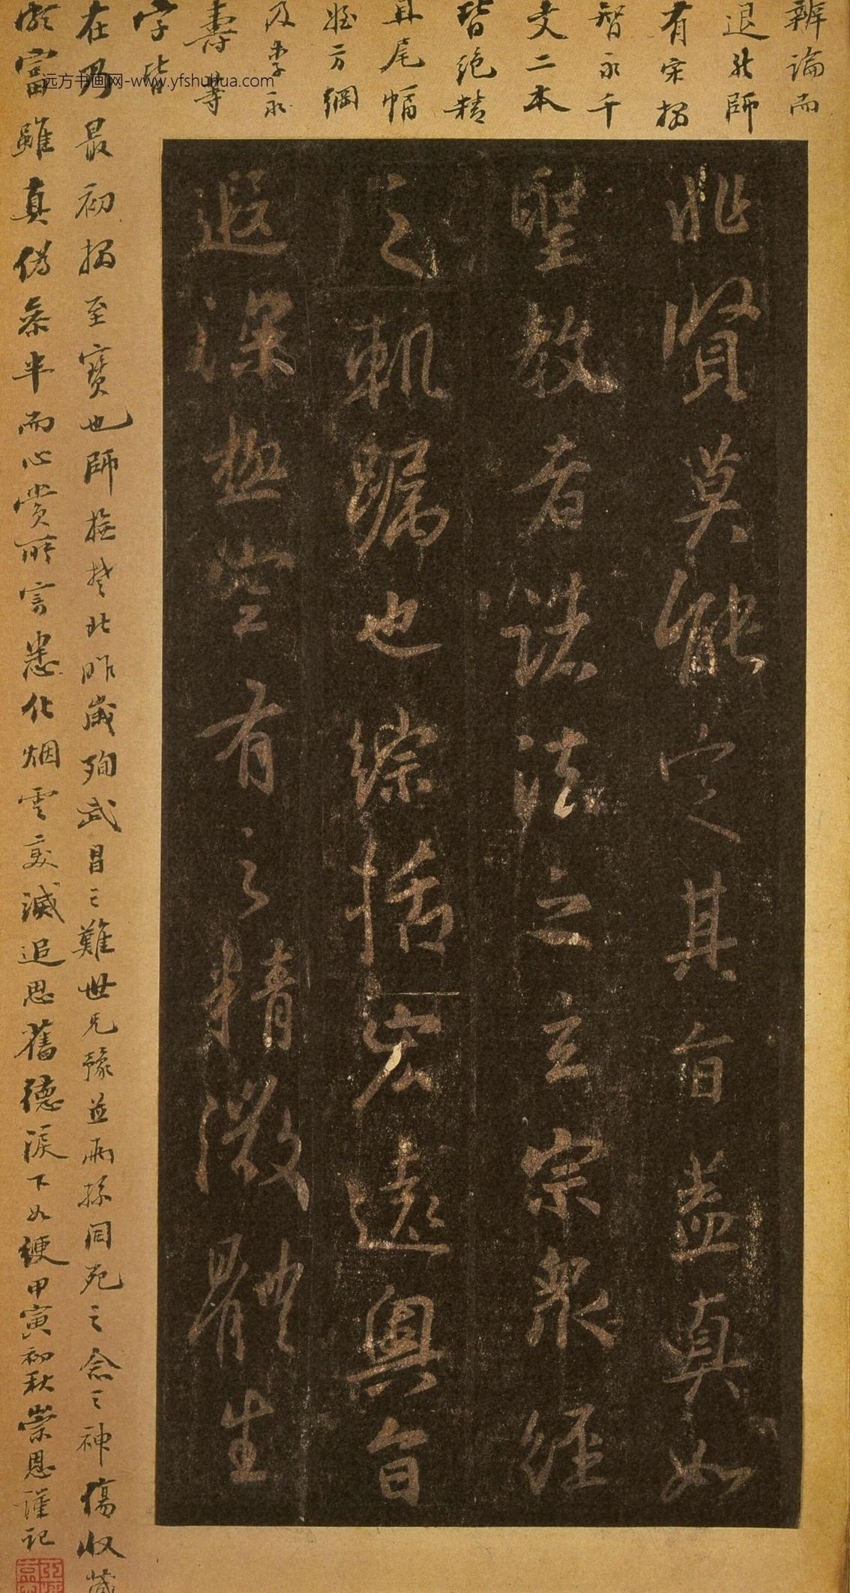 辨論而
退於師
有宋搨
智永千
文二本
皆絕精
具尾幅
姪方綱
及李永
壽等
字皆
在馬最初搨至寶也師撫楚北昨歲殉武昌之難世兄豫並兩孫同死之念之神傷收藏
富雖真偽參半而心賞所寄悉化烟雲變滅追思舊德淚下如綆甲寅初秋崇恩謹記
非賢莫能定其旨盖真如
聖教者諸法之玄宗衆經
之軌躅也綜括宏遠奧旨
遐深極空有之精微體生
远方书画网-www.yfshuhua.com